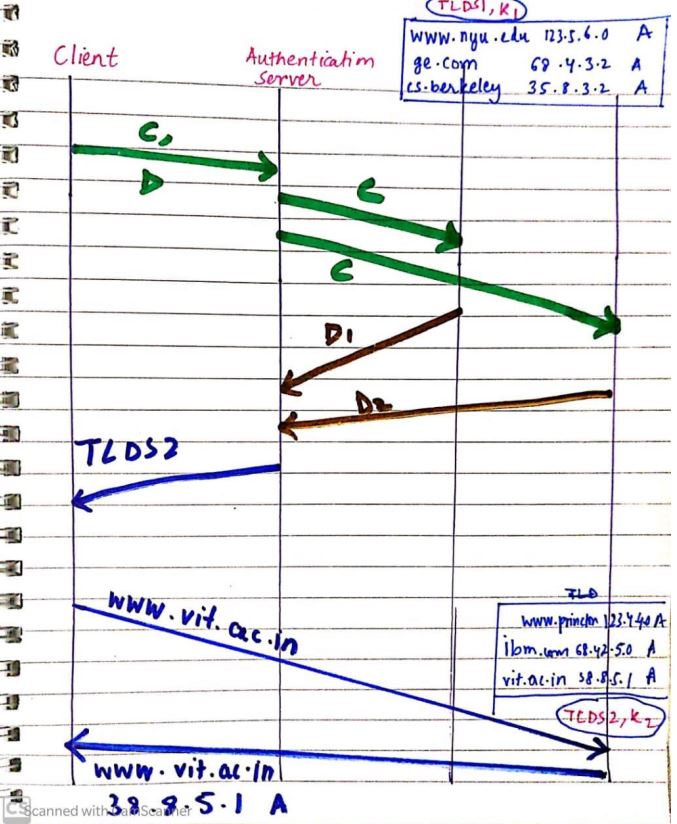 TLDS1, K1
www.nyu.edu 123.5.6.0 A
ge.com 68.4.3.2 A
cs.berkeley 35.8.3.2 A
Client
Authentication
server
C,
D
C
C
D1
D2
TLDS2
www.vit.ac.in
TLD
www.princtn 123.4.40 A
ibm.com 68.42.5.0 A
vit.ac.in 38.8.5.1 A
TLDS2, K2
www.vit.ac.in
38.8.5.1 A
CS Scanned with CamScanner